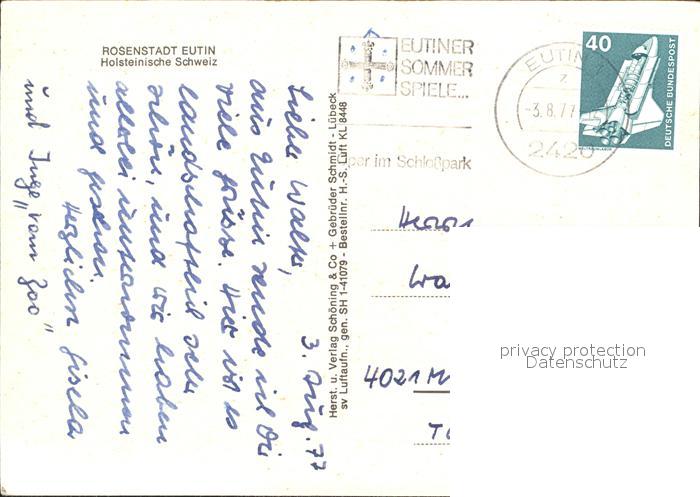 ROSENSTADT EUTIN
Holsteinische Schweiz
3. Aug. 77
Lieber Walter,
aus Eutin sende ich Dir
viele Grüsse. Hier ist es
landschaftlich sehr
schön, und wir haben
allerlei unternommen
und gesehen.
Herzlichst Gisela
und Inge "vom Zoo"
Herst. u. Verlag Schöning & Co + Gebrüder Schmidt - Lübeck
sv Luftaufn., gen. SH 1-41079 - Bestellnr. H.-S. Luft KL 8448
EUTINER
SOMMER
SPIELE...
per im Schloßpark
EUTIN
z
-3.8.77
2420
40
DEUTSCHE BUNDESPOST
Herrn
Wa
4021 M
privacy protection
Datenschutz